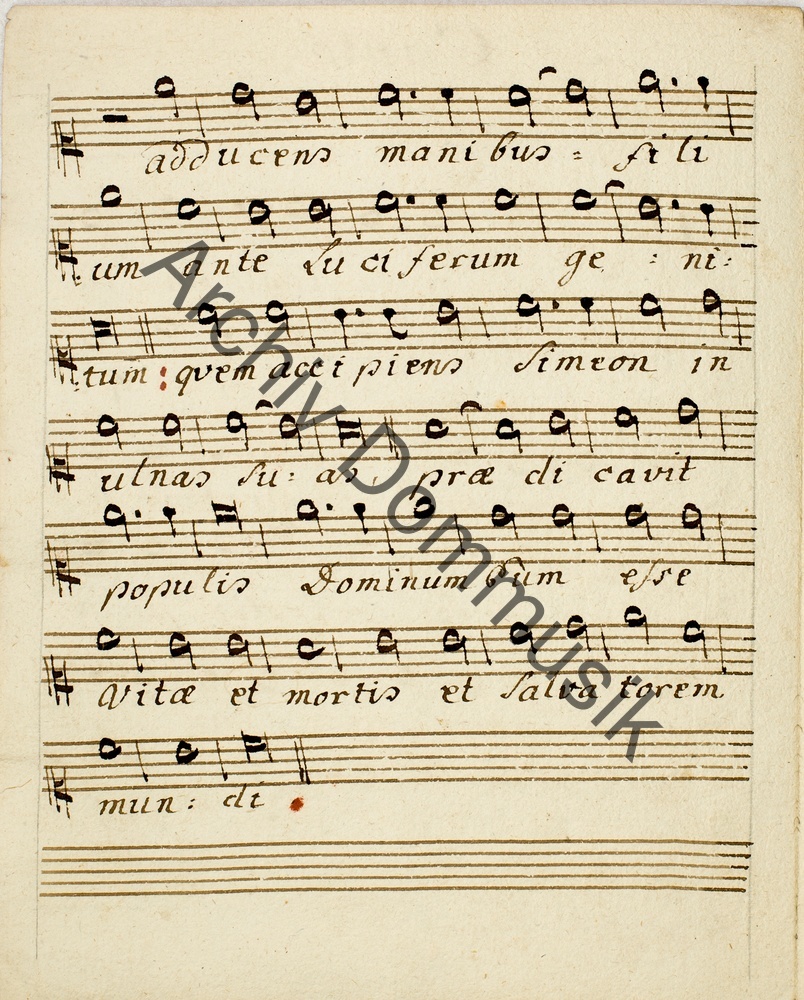 adducens manibus = fili
um ante Luciferum ge : ni:
tum : quem accipiens Simeon in
ulnas su: as, præ di cavit
populis Dominum Eum esse
Vitæ et mortis et Salvatorem
mun: di .
Archiv Dommusik